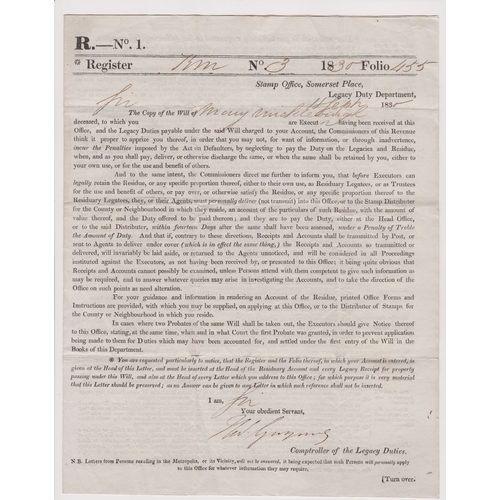 R.—No. 1.
* Register No. 3 1830 Folio 455
Stamp Office, Somerset Place,
Legacy Duty Department,
Sir Sept. 1830
The Copy of the Will of Mary
deceased, to which you are Execut having been received at this
Office, and the Legacy Duties payable under the said Will charged to your Account, the Commissioners of this Revenue
think it proper to apprise you thereof, in order that you may not, for want of information, or through inadvertence,
incur the Penalties imposed by the Act on Defaulters, by neglecting to pay the Duty on the Legacies and Residue,
when, and as you shall pay, deliver, or otherwise discharge the same, or when the same shall be retained by you, either to
your own use, or for the use and benefit of others.
And to the same intent, the Commissioners direct me further to inform you, that before Executors can
legally retain the Residue, or any specific proportion thereof, either to their own use, as Residuary Legatees, or as Trustees
for the use and benefit of others, or pay over, or otherwise satisfy the Residue, or any specific proportion thereof to the
Residuary Legatees, they, or their Agents, must personally deliver (not transmit) into this Office, or to the Stamp Distributor
for the County or Neighbourhood in which they reside, an account of the particulars of such Residue, with the amount of
value thereof, and the Duty offered to be paid thereon; and they are to pay the Duty, either at the Head Office,
or to the said Distributor, within fourteen Days after the same shall have been assessed, under a Penalty of Treble
the Amount of Duty. And that if, contrary to these directions, Receipts and Accounts shall be transmitted by Post, or
sent to Agents to deliver under cover (which is in effect the same thing,) the Receipts and Accounts so transmitted or
delivered, will invariably be laid aside, or returned to the Agents unnoticed, and will be considered in all Proceedings
instituted against the Executors, as not having been received by, or presented to this Office; it being quite obvious that
Receipts and Accounts cannot possibly be examined, unless Persons attend with them competent to give such information as
may be required, and to answer whatever queries may arise in investigating the Accounts, and to take the direction of the
Office on such points as need alteration.
For your guidance and information in rendering an Account of the Residue, printed Office Forms and
Instructions are provided, with which you may be supplied, on applying at this Office, or to the Distributor of Stamps for
the County or Neighbourhood in which you reside.
In cases where two Probates of the same Will shall be taken out, the Executors should give Notice thereof
to this Office, stating, at the same time, when and in what Court the first Probate was granted, in order to prevent application
being made to them for Duties which may have been accounted for, and settled under the first entry of the Will in the
Books of this Department.
* You are requested particularly to notice, that the Register and the Folio thereof, in which your Account is entered, is
given at the Head of this Letter, and must be inserted at the Head of the Residuary Account and every Legacy Receipt for property
passing under this Will, and also at the Head of every Letter which you address to this Office; for which purpose it is very material
that this Letter should be preserved; as no Answer can be given to any Letter in which such reference shall not be inserted.
I am, Sir
Your obedient Servant,
Comptroller of the Legacy Duties.
N.B. Letters from Persons residing in the Metropolis, or its Vicinity, will not be answered, it being expected that such Persons will personally apply
to this Office for whatever information they may require.
[Turn over.